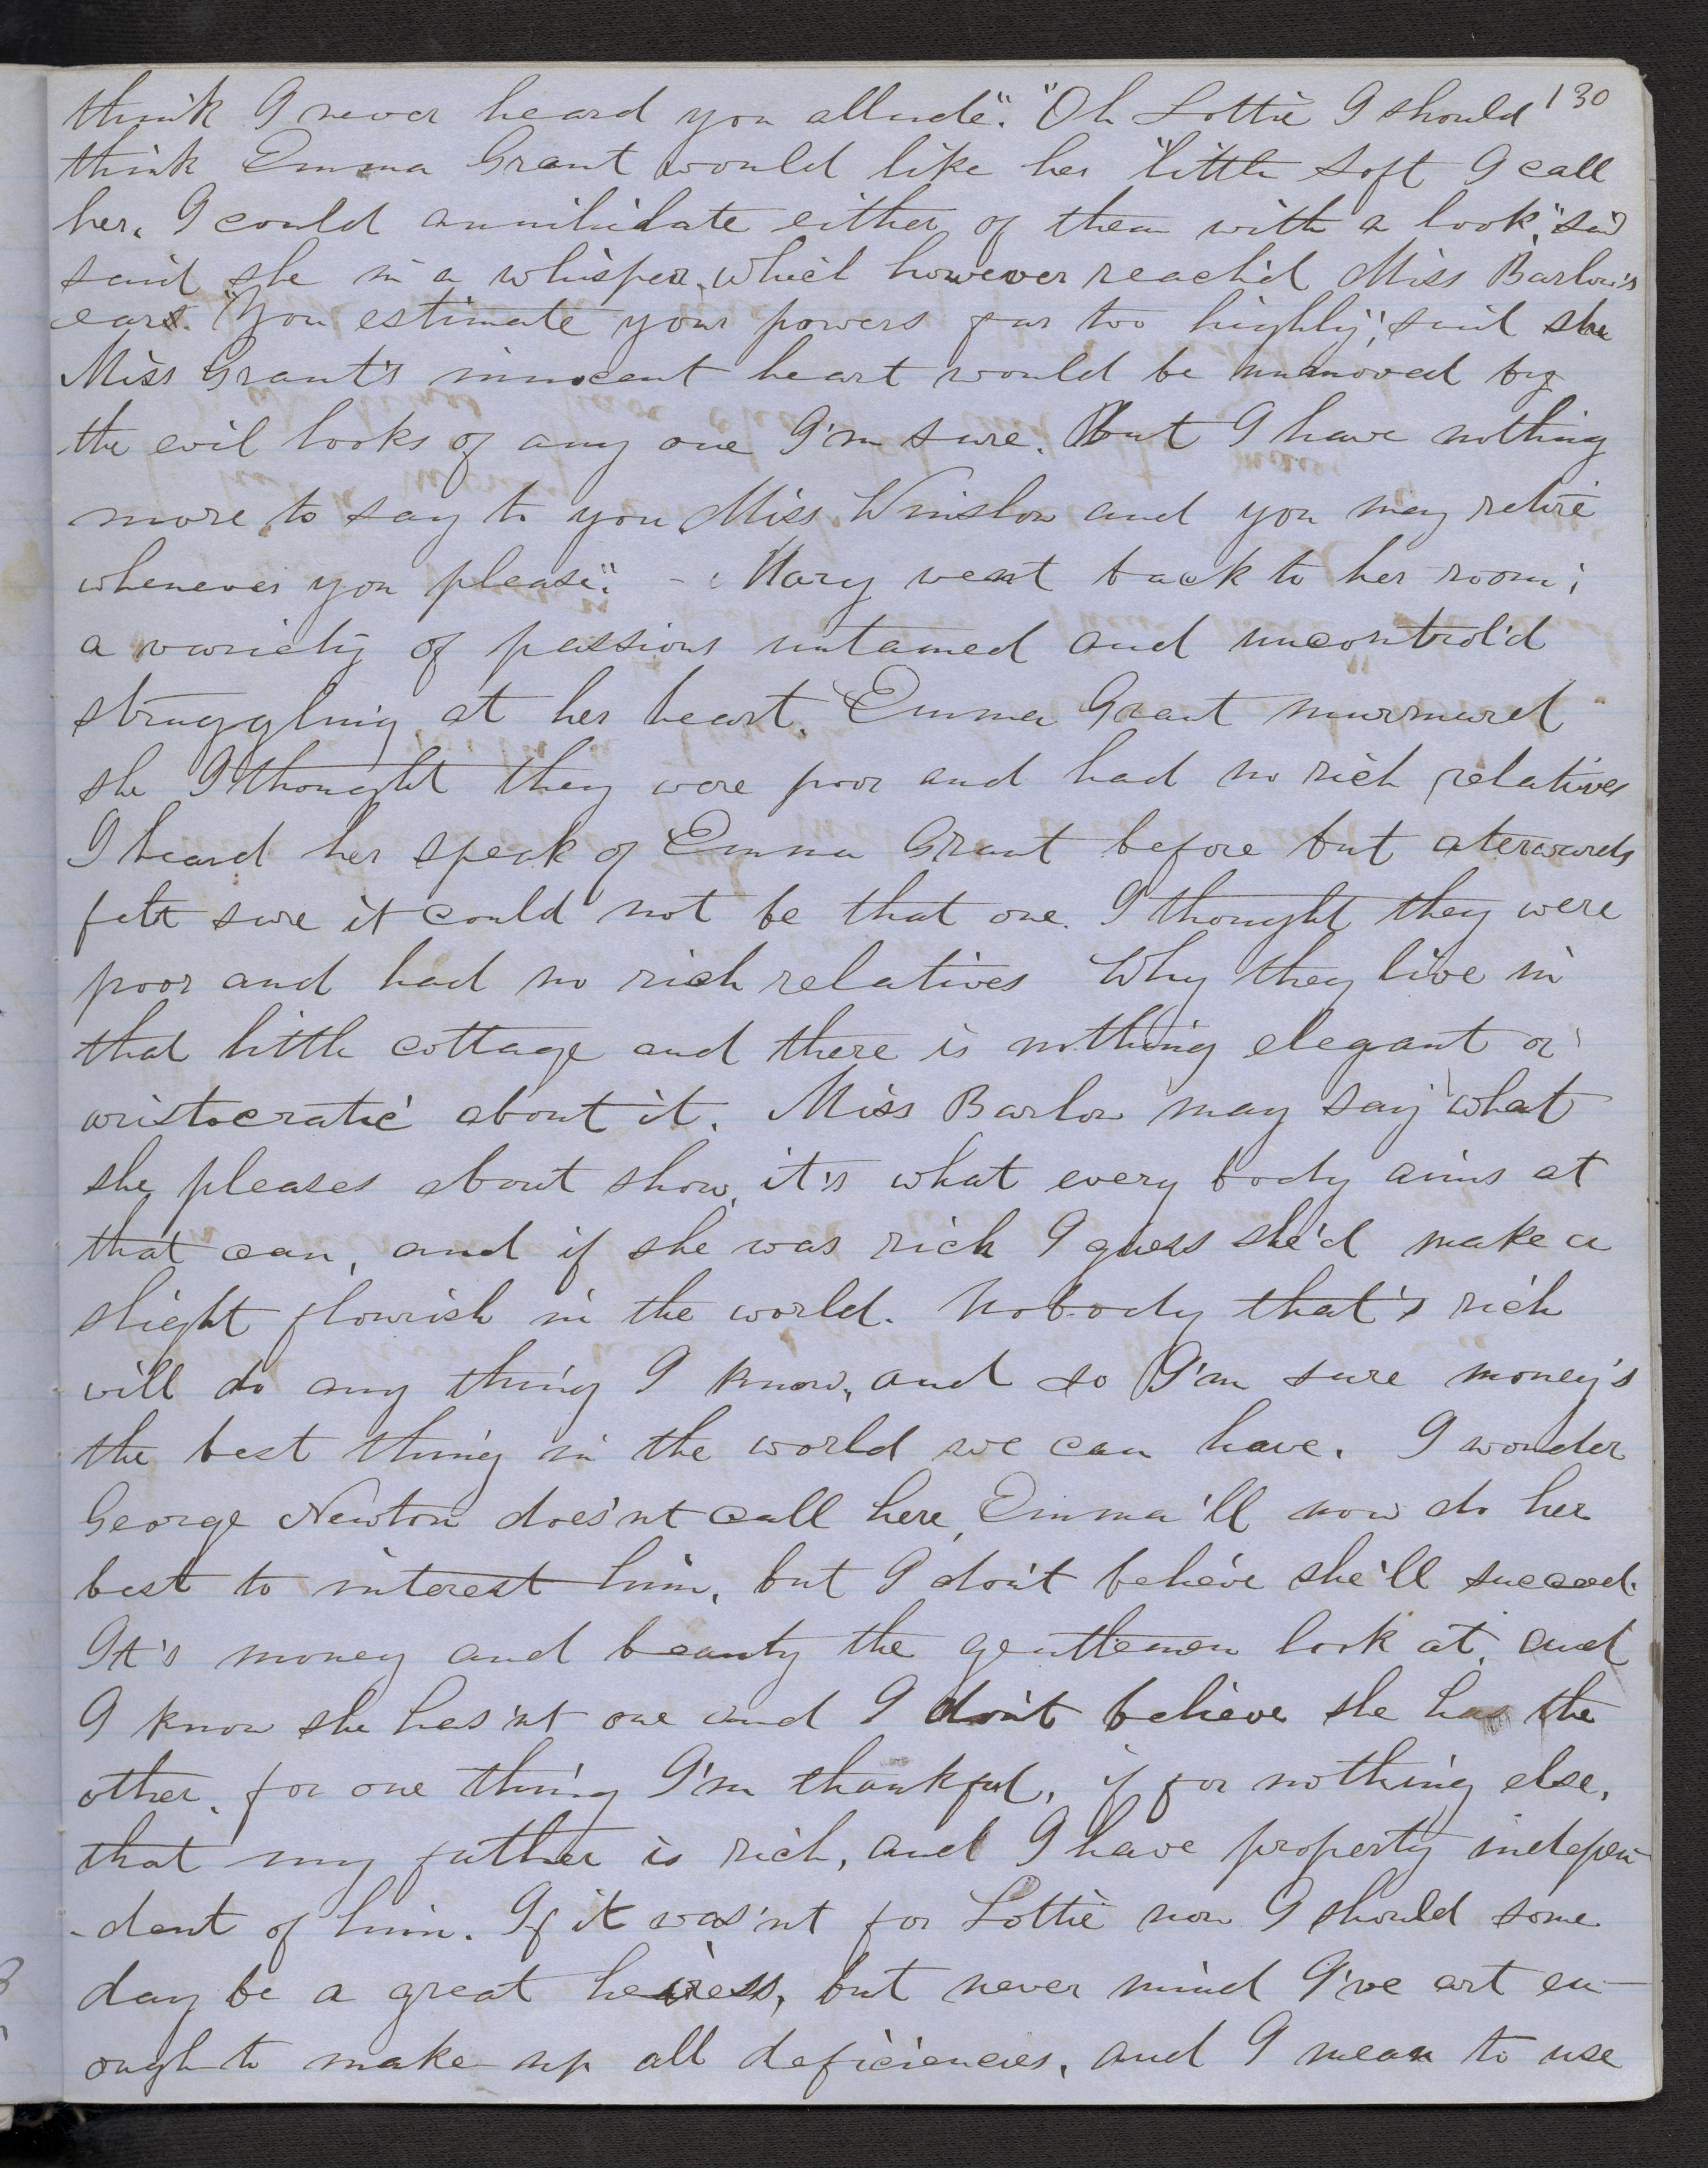 130
think I never heard you allude". "Oh Lottie I should
think Emma Grant would like her "little soft I call
her. I could annihilate either of them with a look," said
said she in a whisper, which however reach'd Miss Barlow's
ears. "You estimate your powers far too highly", said she
Miss Grant's innocent heart would be unmoved by
the evil looks of any one I'm sure. But I have nothing
more to say to you Miss Winslow and you may retire
whenever you please". - Mary went back to her room;
a variety of passions untamed and uncontrol'd
struggling at her heart. Emma Grant murmured
she I thought they were poor and had no rich relatives
I heard her speak of Emma Grant before but aterwards
felt sure it could not be that one. I thought they were
poor and had no rich relatives Why they live in
that little cottage and there is nothing elegant or
aristocratic about it. Miss Barlow may say what
she pleases about show, it's what every body aims at
that can, and if she was rich I guess she'd make a
slight flourish in the world. Nobody that's rich
will do any thing I know, and so I'm sure money's
the best thing in the world we can have. I wonder
George Newton does'nt call here, Emma'll now do her
best to interest him, but I don't believe she'll succeed.
It's money and beauty the gentlemen look at, and
I know she has'nt one and I don't believe she has the
other. for one thing I'm thankful, if for nothing else,
that my father is rich, and I have property indepen-
-dent of him. If it was'nt for Lottie now I should some
day be a great heiress, but never mind I've art en-
ough to make up all deficiencies, and I mean to use